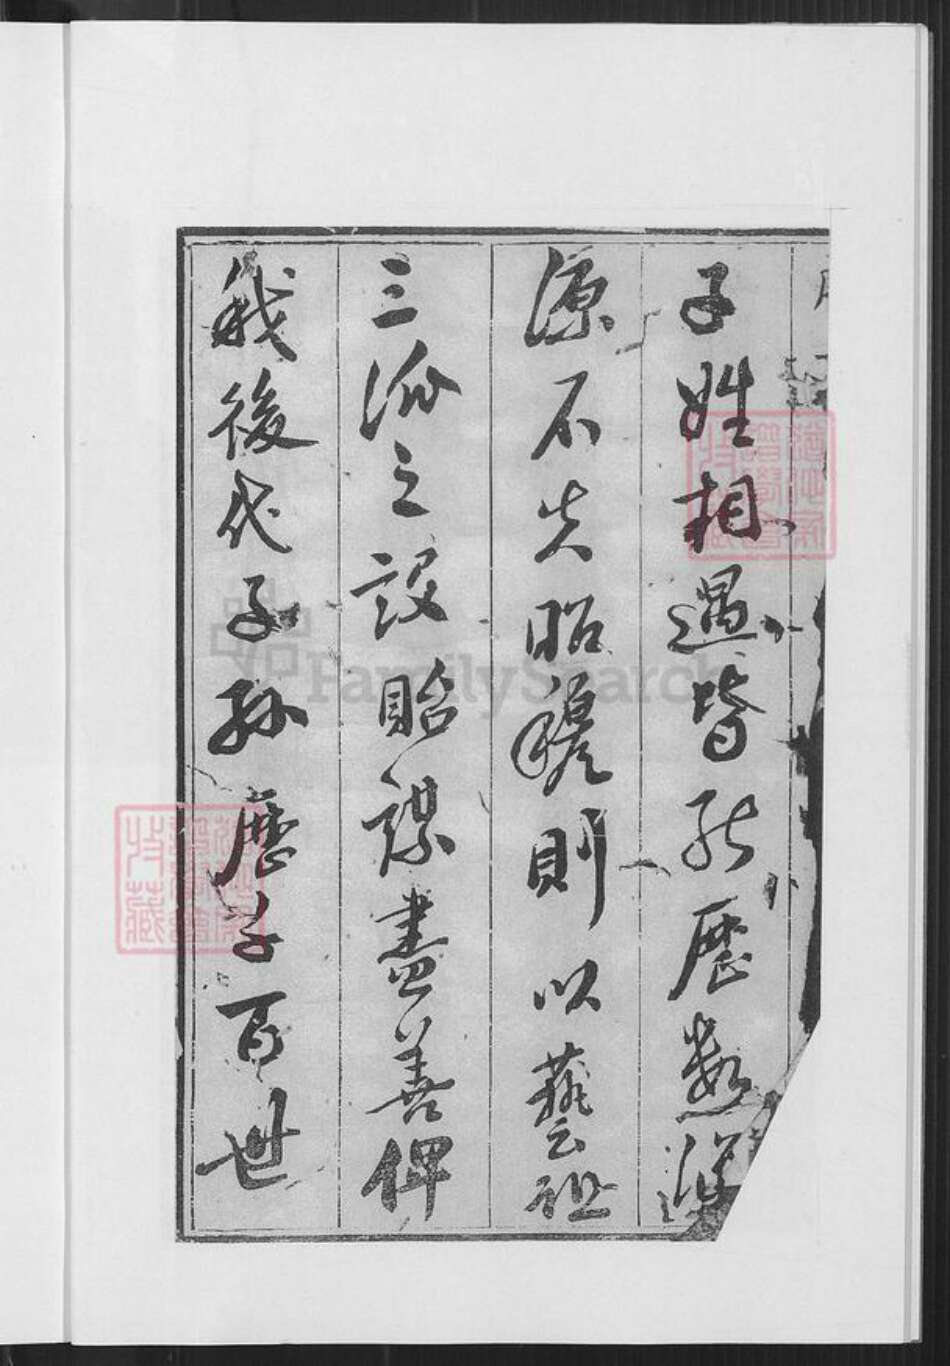 子姓相遇皆能歷數深
源不失昭穆則以藝祖
三派之設貽謀盡善俾
我後代子孫歷千百世
FamilySearch
收藏